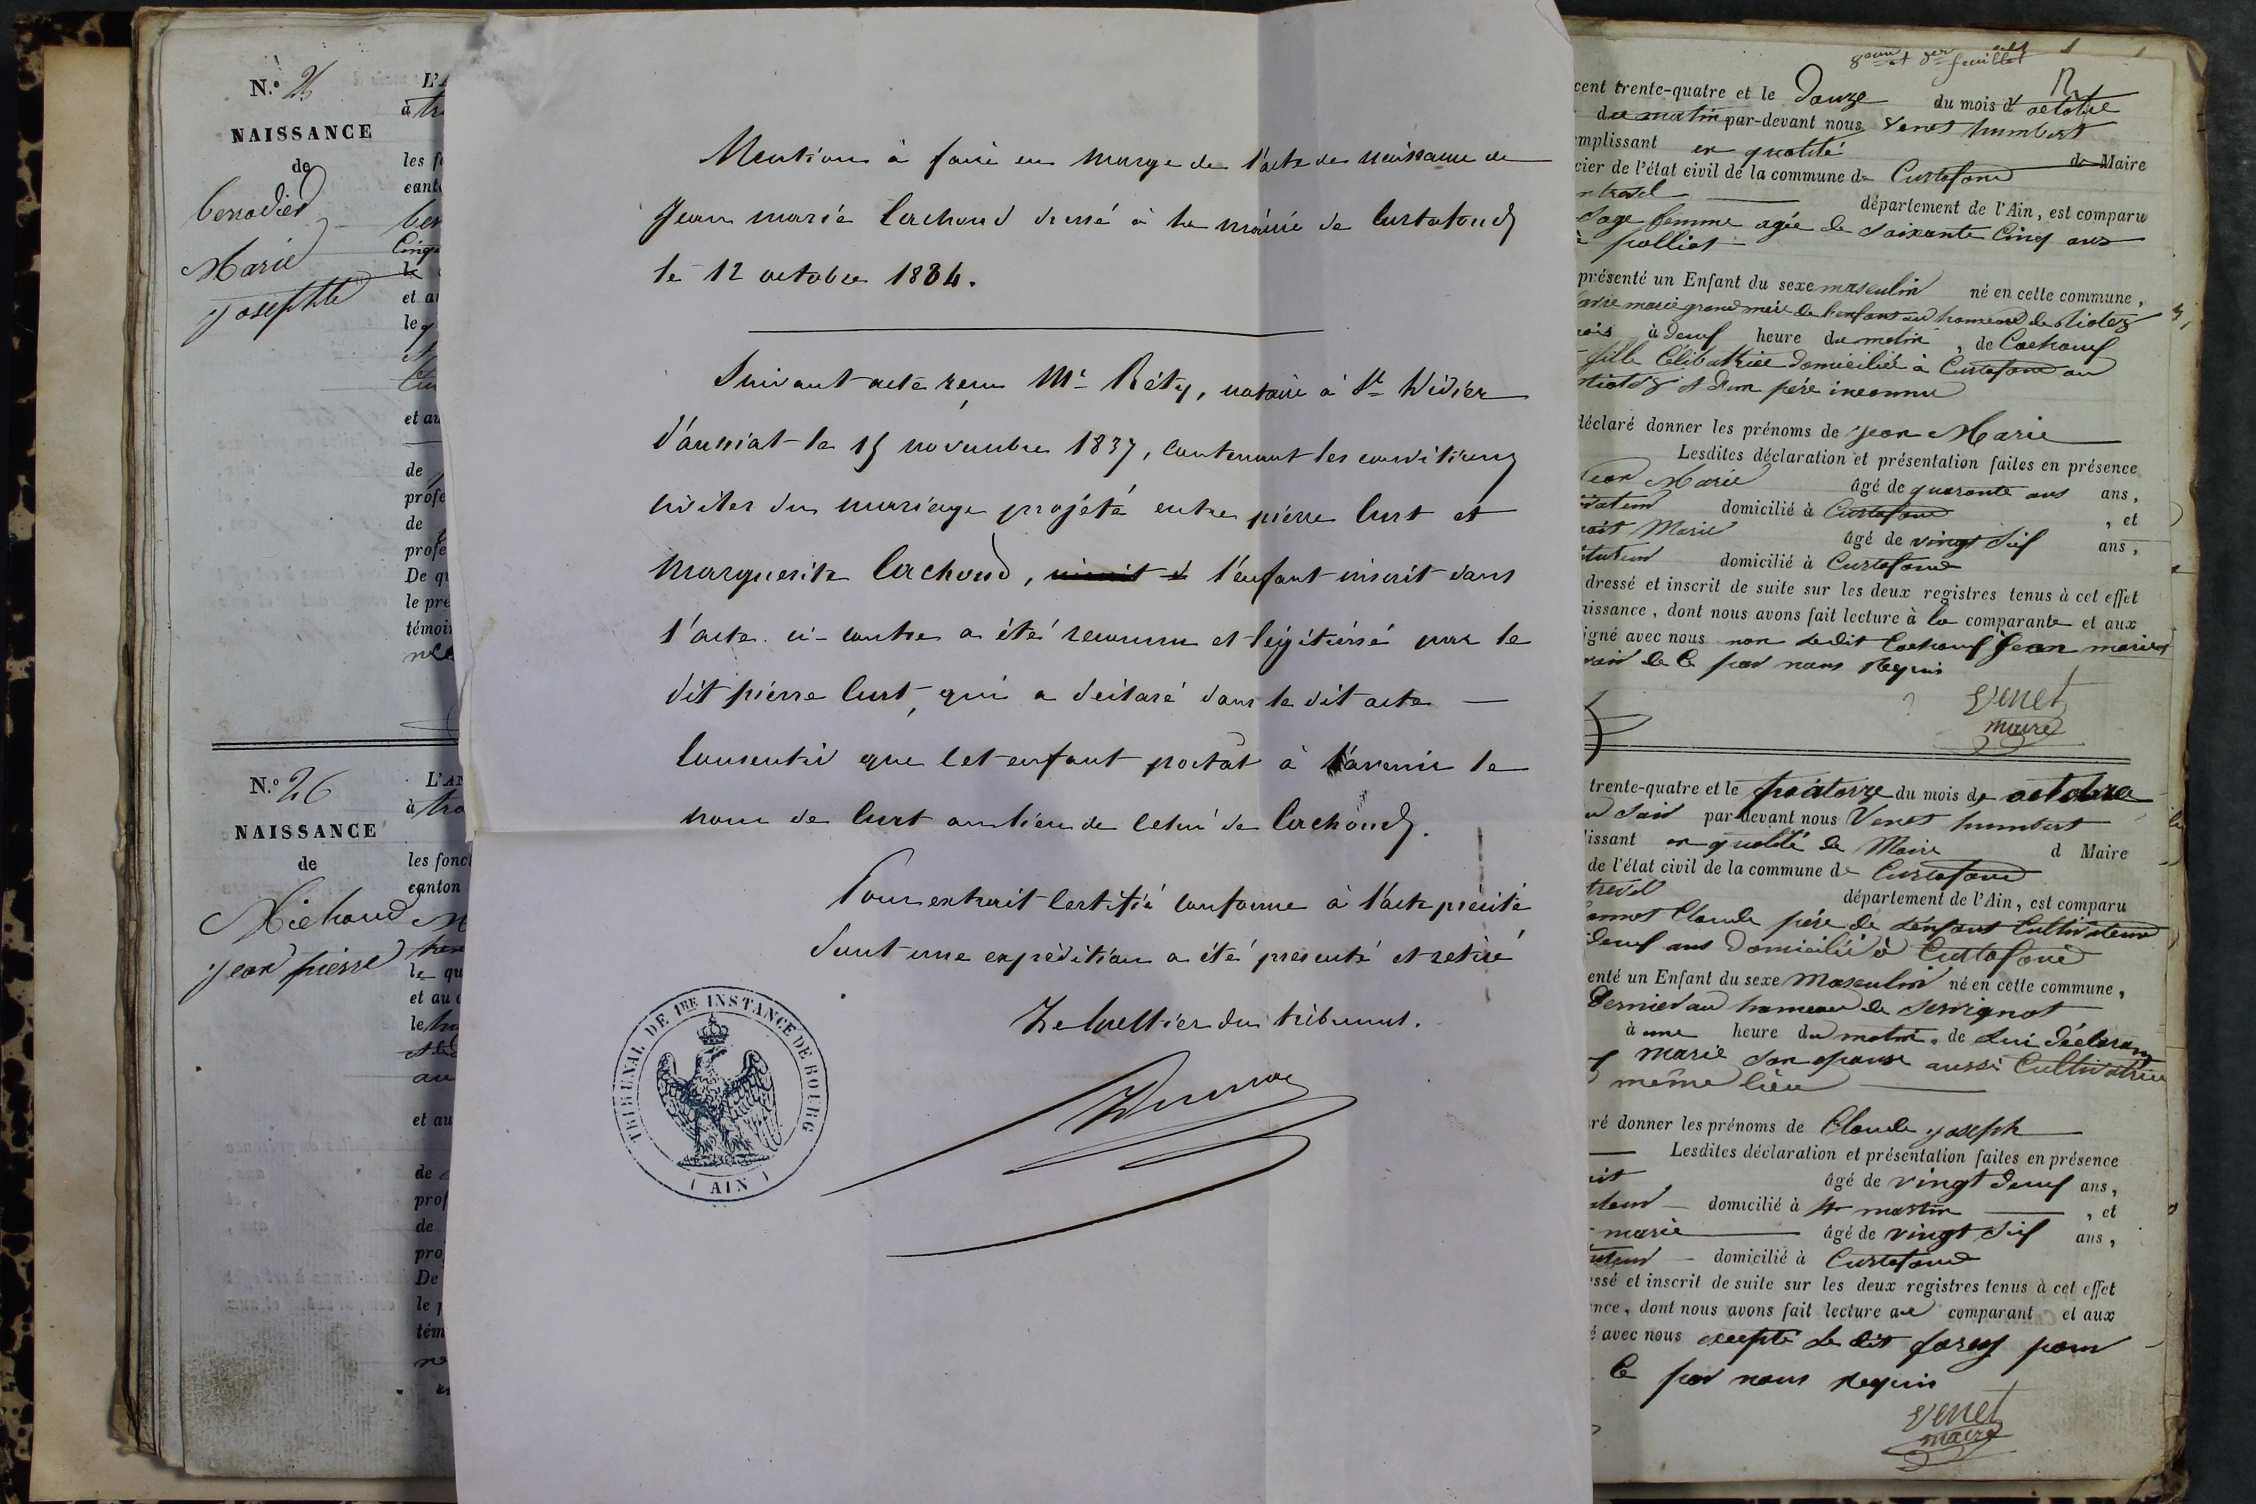 N.° 25
NAISSANCE
de
Marie
Josephte
N.° 26
NAISSANCE
de
Michaud
Jean pierre
L'A
à
les f
cant
et a
le
et au
de
profe
de
profe
De qu
le pre
témoi
L'AN
à
les fonc
canton
le qu
et au
le
au
et au
de
prof
de
pro
De
le
tém
Mention à faire en marge de l'acte de naissance de
Jean marie Cachoud dressé à la mairie de Curtafond
le 12 octobre 1834.
Suivant acte reçu Me Réty, notaire à St Didier
d'aussiat le 15 novembre 1837, contenant les conditions
civiles du mariage projeté entre pierre Curt et
Marguerite Cachoud, l'enfant inscrit dans
l'acte ci-contre a été reconnu et légitimé par le
dit pierre Curt, qui a déclaré dans le dit acte
Consentir que cet enfant portât à l'avenir le
nom de Curt au lieu de celui de Cachoud.
Pour extrait certifié conforme à l'acte précité
dont une expédition a été présenté et retiré
Le Greffier du tribunal.
TRIBUNAL DE 1RE INSTANCE DE BOURG
(AIN)
8eme et der feuillet
cent trente-quatre et le Douze du mois d'octobre
du matin par-devant nous Venet humbert
mplissant en qualité de Maire
cier de l'état civil de la commune de Curtafond
département de l'Ain, est comparu
Sage femme agée de Soixante Cinq ans
à polliat
présenté un Enfant du sexe masculin né en cette commune,
marie grand mère de l'enfant au hameau de
mois à Deux heure du matin, de Cachoud
fille Célibattrice domiciliée à Curtafond au
et d'un père inconnu
déclaré donner les prénoms de Jean Marie
Lesdites déclaration et présentation faites en présence
Jean Marie âgé de quarante ans ans,
domicilié à Curtafond, et
Marie âgé de vingt Sief ans,
domicilié à Curtafond
dressé et inscrit de suite sur les deux registres tenus à cet effet
aissance, dont nous avons fait lecture à la comparante et aux
igné avec nous non ledit Cachoud Jean marie
de Ce par nous Requis
Venet
maire
trente-quatre et le quatorze du mois de octobre
u Soir par devant nous Venet humbert
lissant en qualité de Maire d Maire
de l'état civil de la commune de Curtafond
département de l'Ain, est comparu
Claude père de l'enfant Cultivateur
deux ans Domicilié à Curtafond
enté un Enfant du sexe Masculin né en cette commune,
Dernier au hameau de Servignat
à une heure du matin, de Lui Déclarant
marie Son épouse aussi Cultivatrice
même lieu
ré donner les prénoms de Claude Joseph
Lesdites déclaration et présentation faites en présence
âgé de vingt Deux ans,
domicilié à St martin, et
marie âgé de vingt Sief ans,
domicilié à Curtafond
essé et inscrit de suite sur les deux registres tenus à cet effet
nce, dont nous avons fait lecture au comparant et aux
é avec nous excepté Le dit pour
Ce par nous Requis
Venet
maire